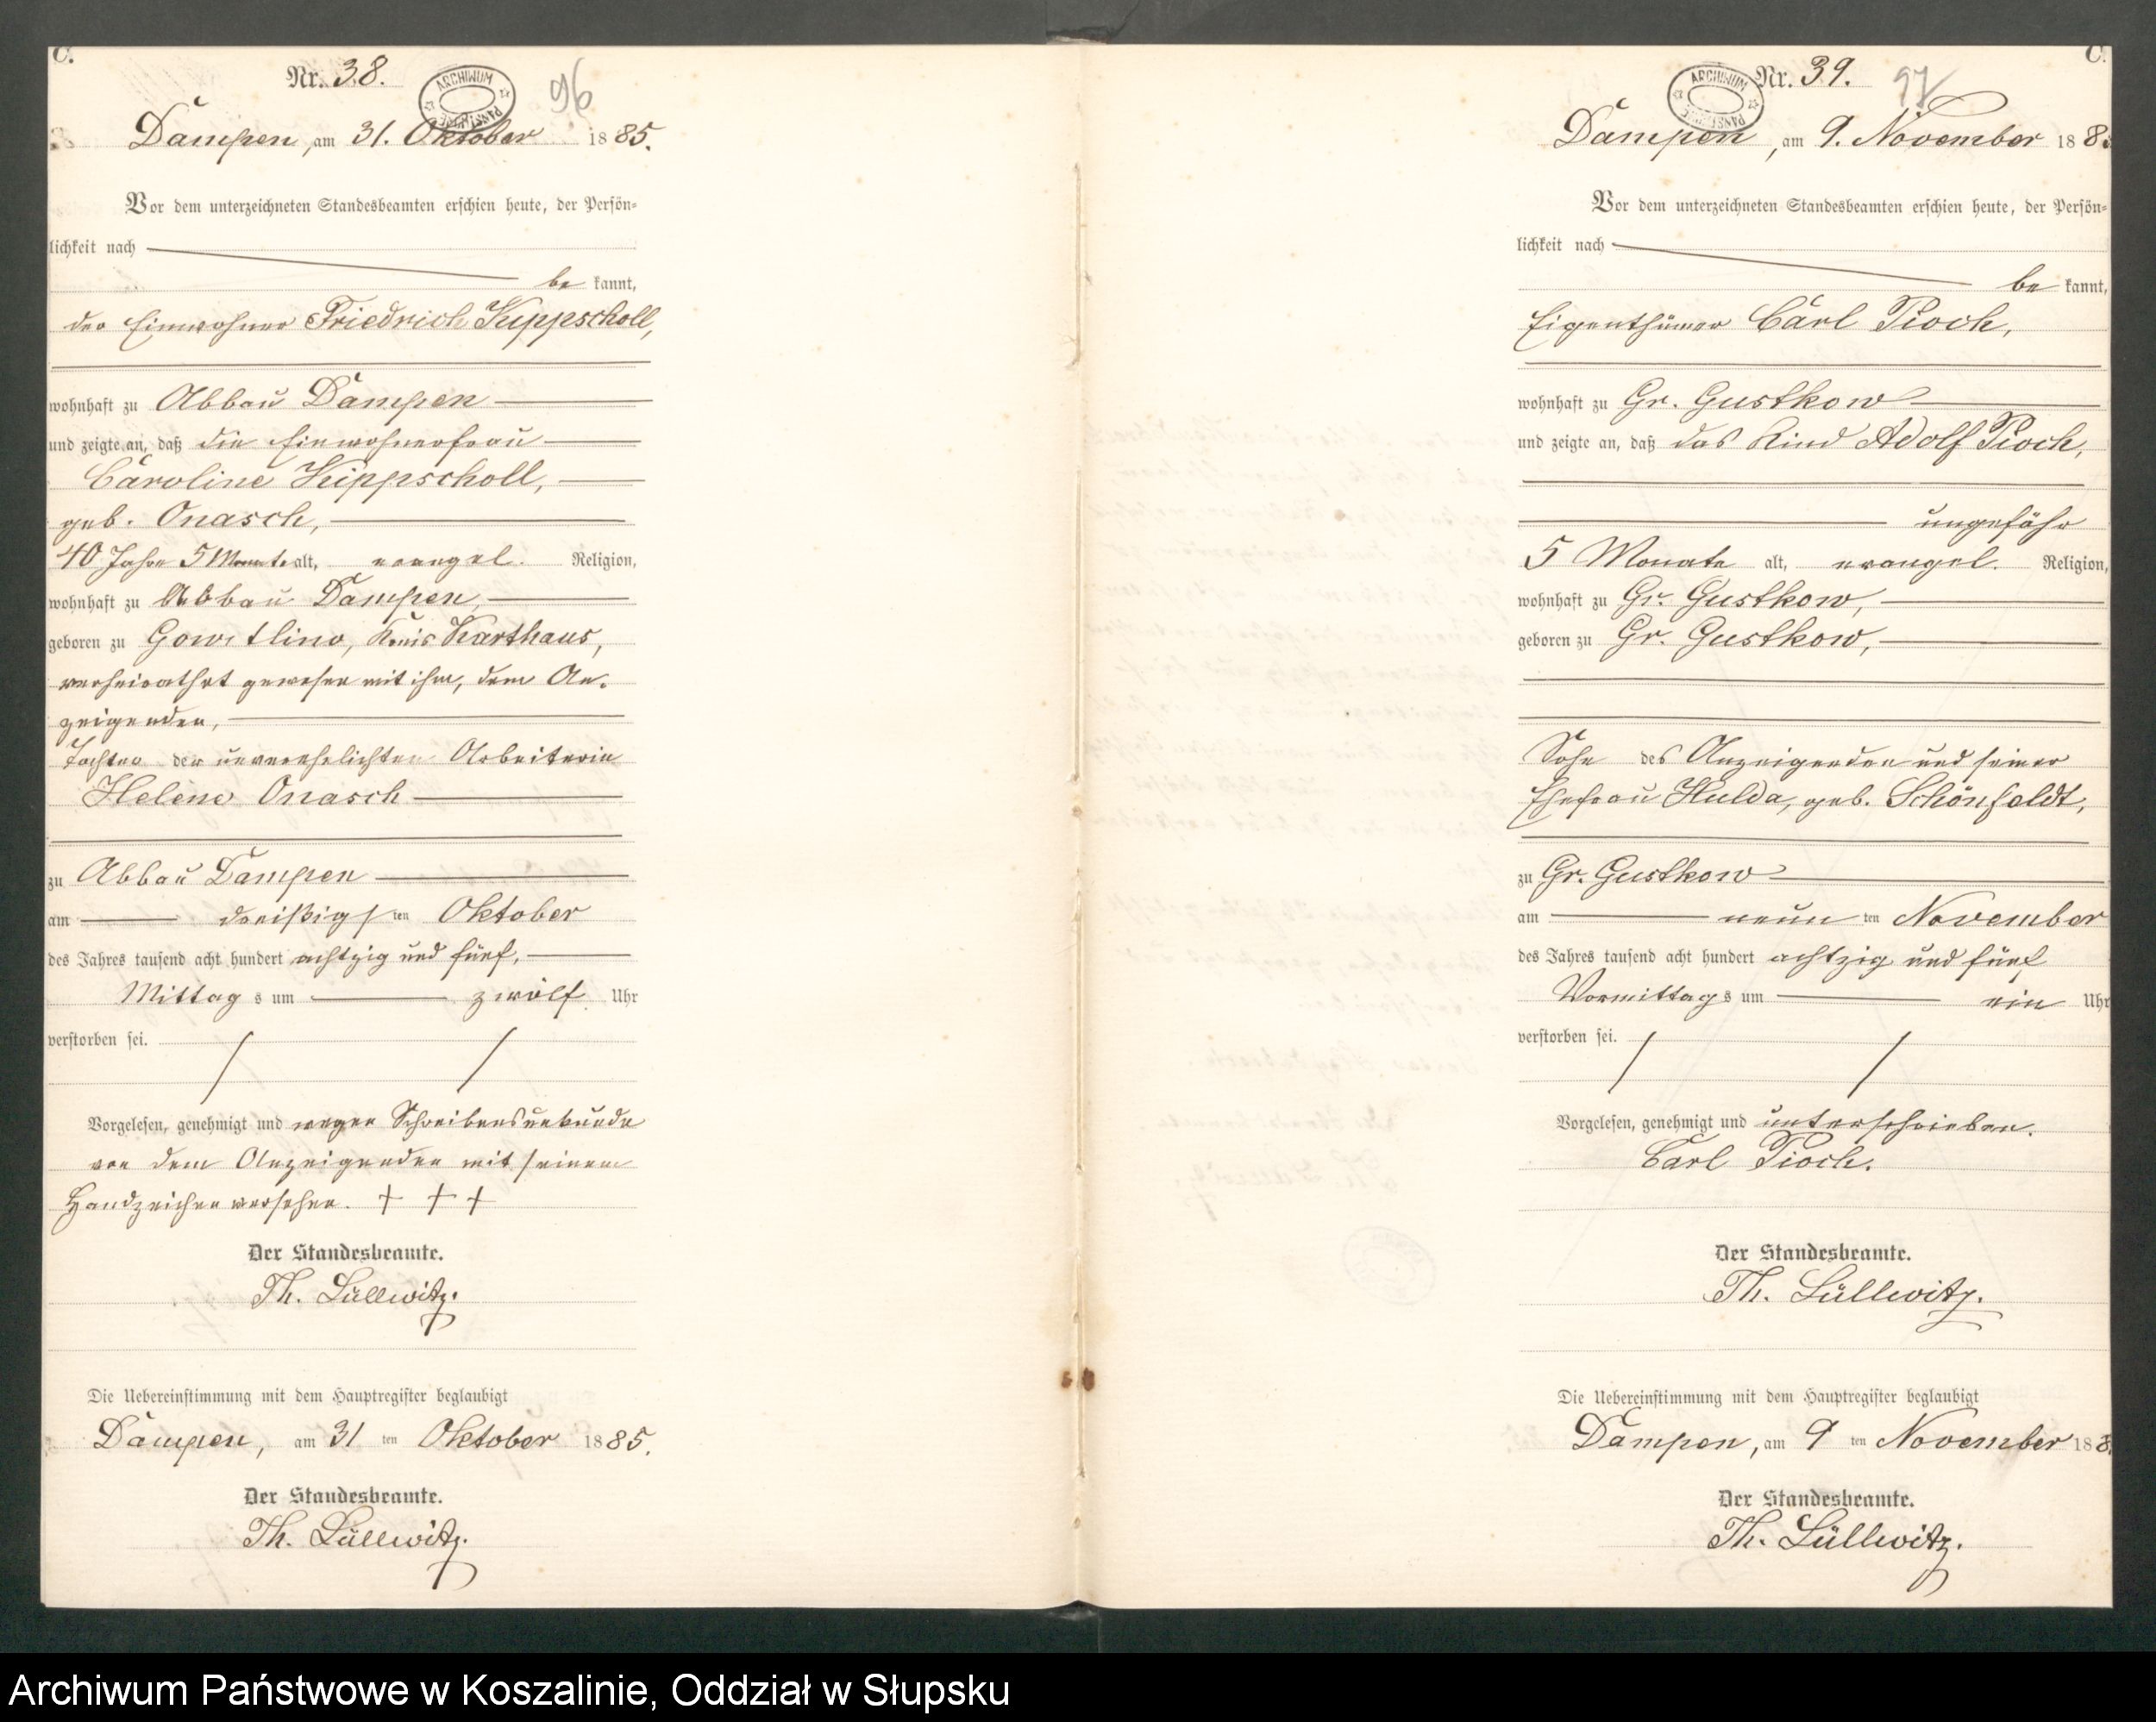 C.
Nr. 38.
ARCHIWUM
96
Dampen, am 31. Oktober 1885.
Vor dem unterzeichneten Standesbeamten erschien heute, der Persön-
lichkeit nach
be kannt,
der Einwohner Friedrich Kuppscholl,
wohnhaft zu Abbau Dampen
und zeigte an, daß die Einwohnerfrau
Caroline Kuppscholl,
geb. Onasch,
40 Jahre 5 Monate alt, evangel. Religion,
wohnhaft zu Abbau Dampen,
geboren zu Gowitlino, Kreis Karthaus,
verheirathet gewesen mit ihm, dem An-
zeigenden,
Tochter der unverehelichten Arbeiterin
Helene Onasch
zu Abbau Dampen
am dreißigsten Oktober
des Jahres tausend acht hundert achtzig und fünf,
Mittags um zwölf Uhr
verstorben sei.
Vorgelesen, genehmigt und wegen Schreibensunkunde
von dem Anzeigenden mit seinem
Handzeichen versehen. + + +
Der Standesbeamte.
Th. Lüllwitz.
Die Uebereinstimmung mit dem Hauptregister beglaubigt
Dampen, am 31 ten Oktober 1885.
Der Standesbeamte.
Th. Lüllwitz.
C.
Nr. 39.
ARCHIWUM
97
Dampen, am 9. November 188
Vor dem unterzeichneten Standesbeamten erschien heute, der Persön-
lichkeit nach
be kannt,
Eigenthümer Carl Pioch,
wohnhaft zu Gr. Gustkow
und zeigte an, daß das Kind Adolf Pioch,
ungefähr
5 Monate alt, evangel. Religion,
wohnhaft zu Gr. Gustkow,
geboren zu Gr. Gustkow,
Sohn des Anzeigenden und seiner
Ehefrau Hulda, geb. Schönfeldt,
zu Gr. Gustkow
am neun ten November
des Jahres tausend acht hundert achtzig und fünf
Vormittags um ein Uhr
verstorben sei.
Vorgelesen, genehmigt und unterschrieben.
Carl Pioch.
Der Standesbeamte.
Th. Lüllwitz.
Die Uebereinstimmung mit dem Hauptregister beglaubigt
Dampen, am 9 ten November 188
Der Standesbeamte.
Th. Lüllwitz.
Archiwum Państwowe w Koszalinie, Oddział w Słupsku